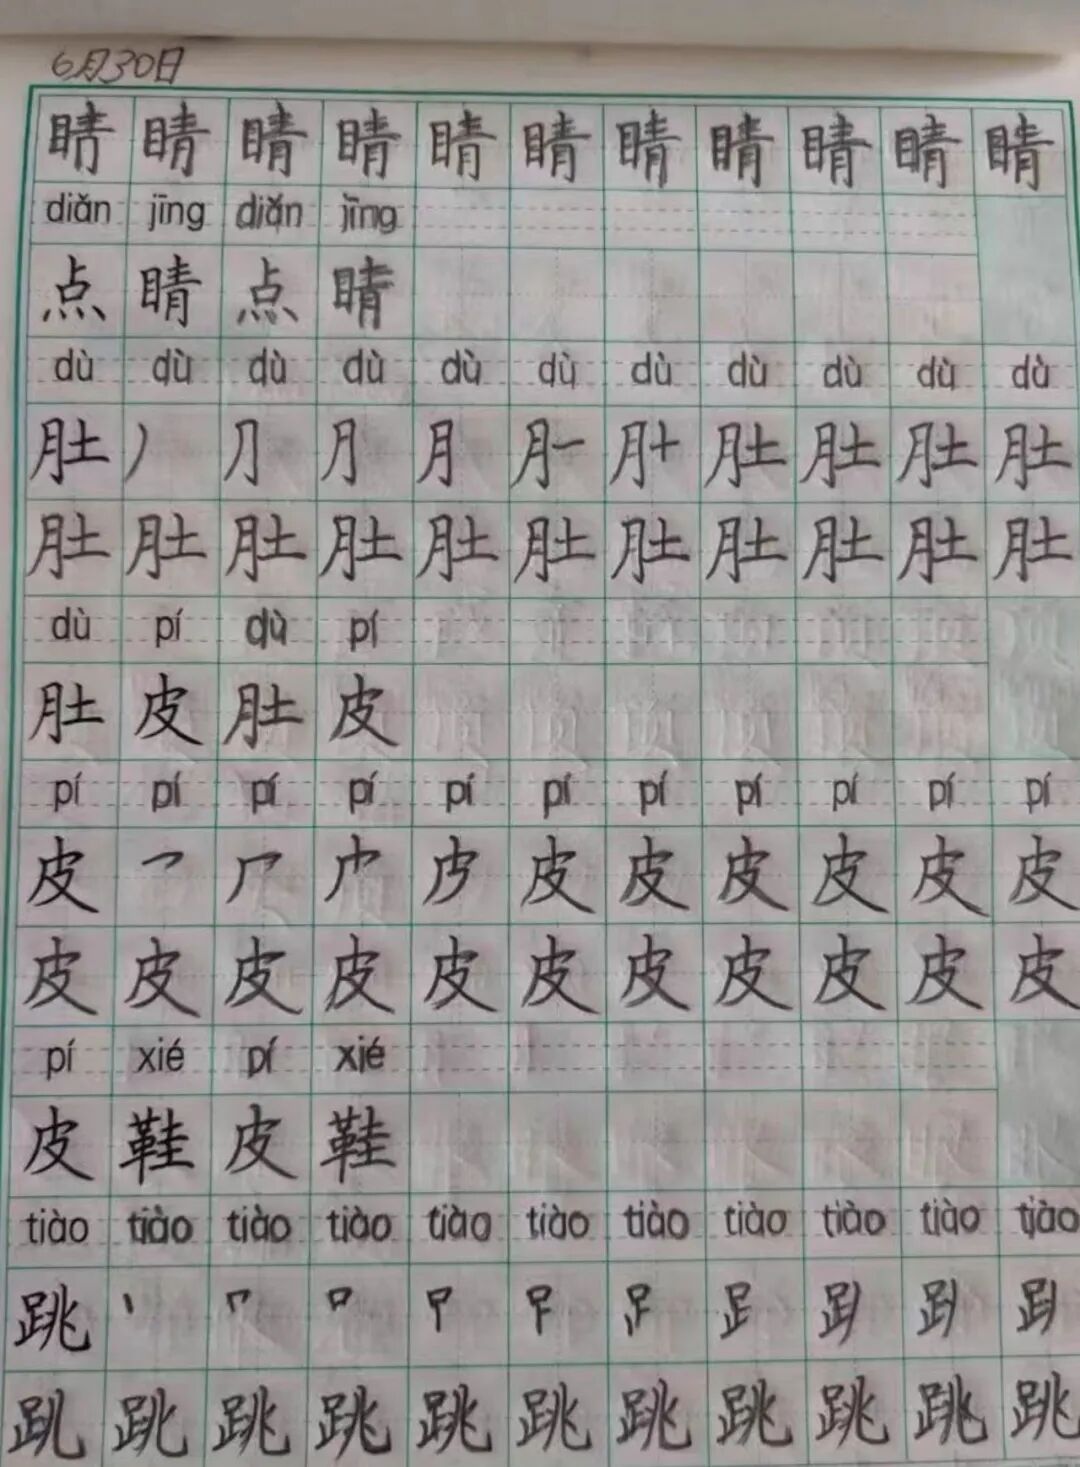 6月30日
睛 睛 睛 睛 睛 睛 睛 睛 睛 睛
diǎn jīng diǎn jīng
点 睛 点 睛
dù dù dù dù dù dù dù dù dù dù dù
肚 丿 ⺆ 月 月 肚 肚 肚 肚
肚 肚 肚 肚 肚 肚 肚 肚 肚 肚 肚
dù pí dù pí
肚 皮 肚 皮
pí pí pí pí pí pí pí pí pí pí pí
皮 乛 皮 皮 皮 皮 皮 皮 皮
皮 皮 皮 皮 皮 皮 皮 皮 皮 皮 皮
pí xié pí xié
皮 鞋 皮 鞋
tiào tiào tiào tiào tiào tiào tiào tiào tiào tiào tiào
跳 丨 口
跳 跳 跳 跳 跳 跳 跳 跳 跳 跳